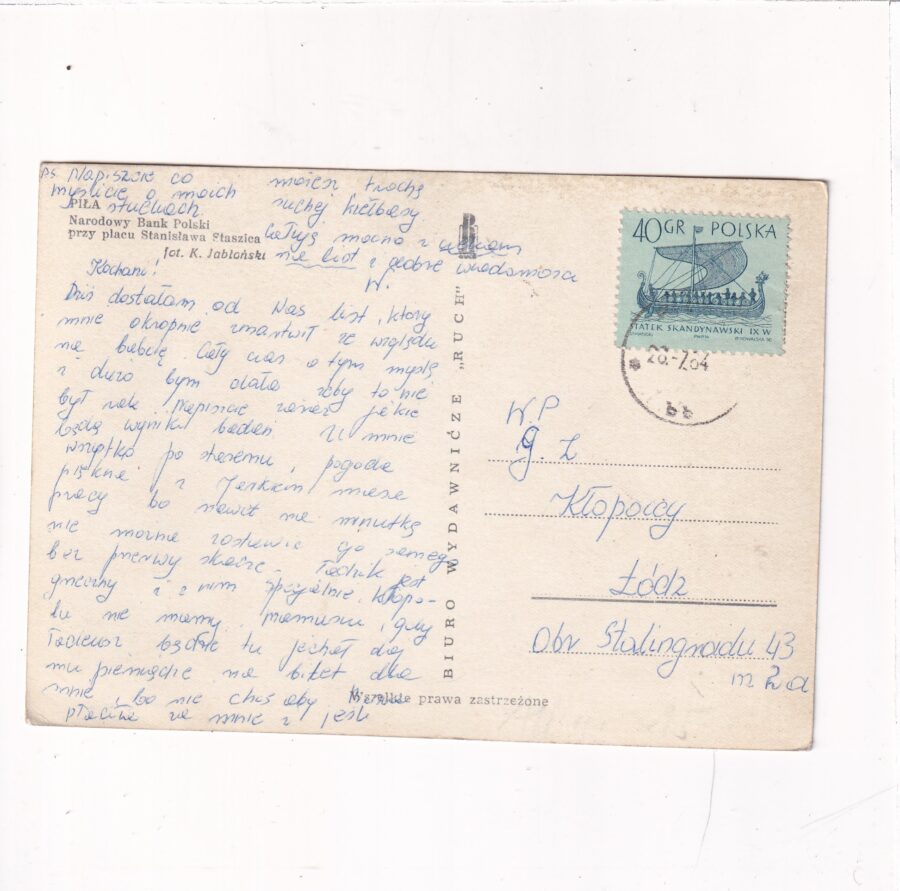 PS Napiszcie co
myślicie o moich
słuchach
PIŁA
Narodowy Bank Polski
przy placu Stanisława Staszica
fot. K. Jabłoński
Kochani!
Dziś dostałam od Was list, który
mnie okropnie zmartwił ze względu
na babcię. Cały czas o tym myślę
i dużo bym dała żeby to nie
był rak. Napiszcie zaraz jakie
będą wyniki badań. U mnie
wszystko po staremu, pogoda
piękna z Jerkiem masa
pracy bo nawet na minutkę
nie można zostawić go samego
bez przerwy skacze. Tadzik jest
grzeczny i z nim specjalnie kłopo-
tu nie mamy. Mamusiu, gdy
Tadeusz będzie tu jechał daj
mu pieniądze na bilet dla
mnie, bo nie chcę aby
płaciła za mnie i jeśli
możesz trochę
suchej kiełbasy.
Całuję mocno i czekam
na list i dobre wiadomości
W.
BIURO WYDAWNICZE „RUCH"
Wszelkie prawa zastrzeżone
40 GR POLSKA
STATEK SKANDYNAWSKI IX W
PWPW
28.-7.64
W.P.
G. Z
Kłopoccy
Łódź
Obr. Stalingradu 43
m 2a